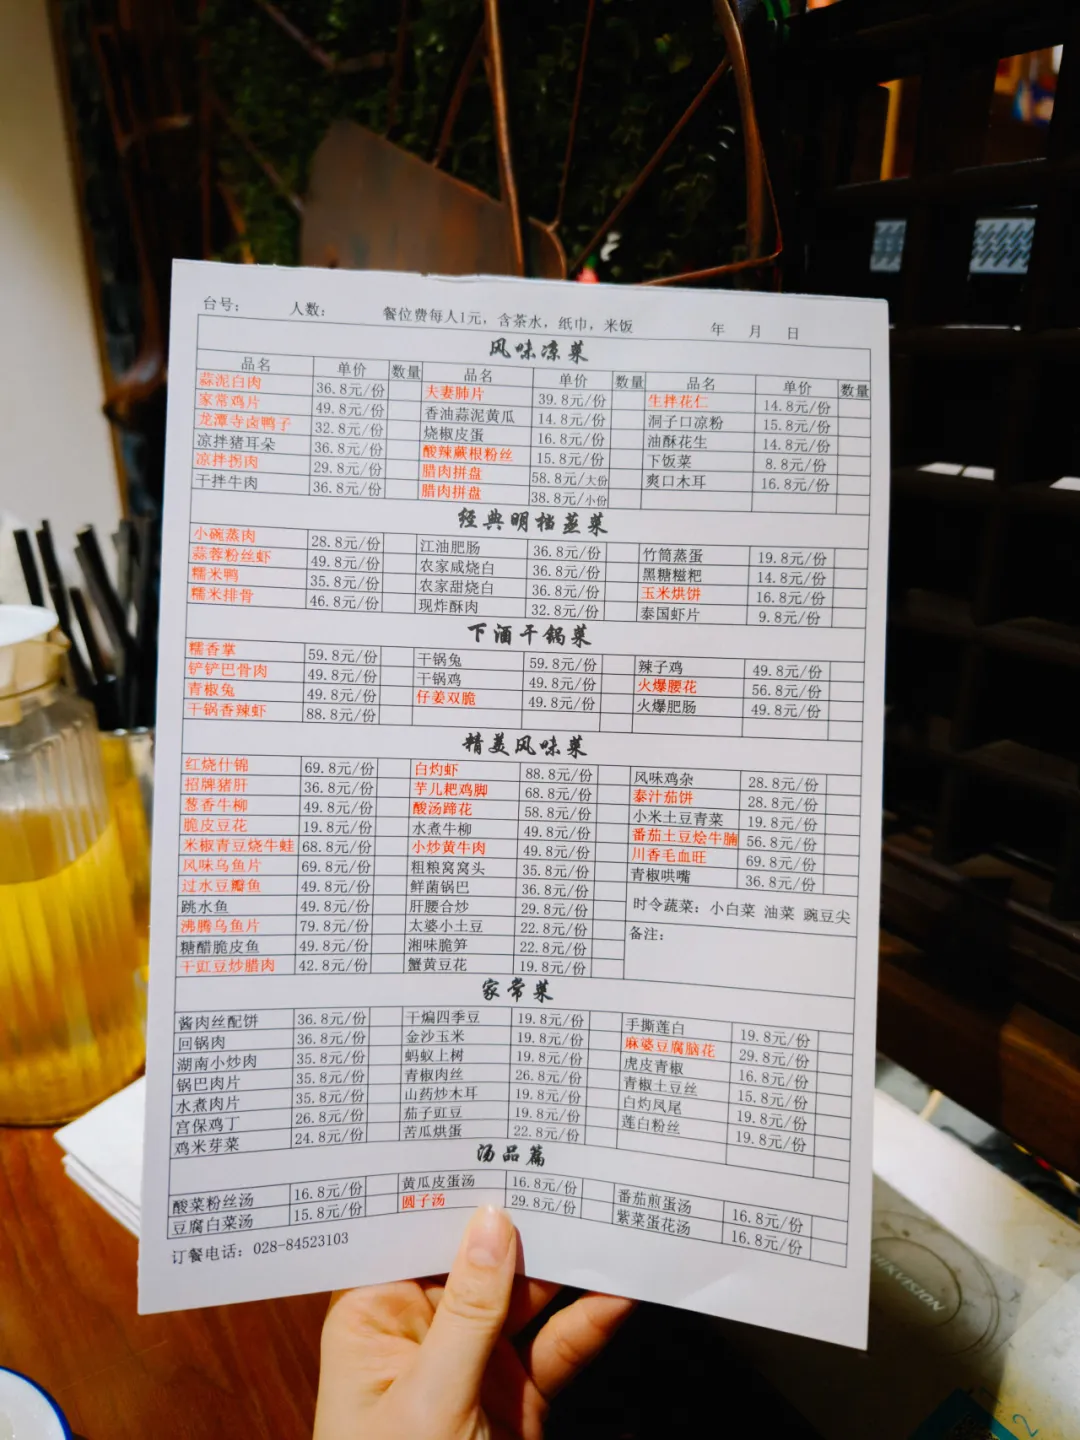 台号： 人数： 餐位费每人1元，含茶水，纸巾，米饭 年 月 日
风味凉菜
品名 单价 数量 品名 单价 数量 品名 单价 数量
蒜泥白肉 36.8元/份 夫妻肺片 39.8元/份 生拌花仁 14.8元/份
家常鸡片 49.8元/份 香油蒜泥黄瓜 14.8元/份 洞子口凉粉 15.8元/份
龙潭寺卤鸭子 32.8元/份 烧椒皮蛋 16.8元/份 油酥花生 14.8元/份
凉拌猪耳朵 36.8元/份 酸辣蕨根粉丝 15.8元/份 下饭菜 8.8元/份
凉拌拐肉 29.8元/份 腊肉拼盘 58.8元/大份 爽口木耳 16.8元/份
干拌牛肉 36.8元/份 腊肉拼盘 38.8元/小份
经典明档蒸菜
小碗蒸肉 28.8元/份 江油肥肠 36.8元/份 竹筒蒸蛋 19.8元/份
蒜蓉粉丝虾 49.8元/份 农家咸烧白 36.8元/份 黑糖糍粑 14.8元/份
糯米鸭 35.8元/份 农家甜烧白 36.8元/份 玉米烘饼 16.8元/份
糯米排骨 46.8元/份 现炸酥肉 32.8元/份 泰国虾片 9.8元/份
下酒干锅菜
糯香掌 59.8元/份 干锅兔 59.8元/份 辣子鸡 49.8元/份
铲铲巴骨肉 49.8元/份 干锅鸡 49.8元/份 火爆腰花 56.8元/份
青椒兔 49.8元/份 仔姜双脆 49.8元/份 火爆肥肠 49.8元/份
干锅香辣虾 88.8元/份
精美风味菜
红烧什锦 69.8元/份 白灼虾 88.8元/份 风味鸡杂 28.8元/份
招牌猪肝 36.8元/份 芋儿耙鸡脚 68.8元/份 泰汁茄饼 28.8元/份
葱香牛柳 49.8元/份 酸汤蹄花 58.8元/份 小米土豆青菜 19.8元/份
脆皮豆花 19.8元/份 水煮牛柳 49.8元/份 番茄土豆烩牛腩 56.8元/份
米椒青豆烧牛蛙 68.8元/份 小炒黄牛肉 49.8元/份 川香毛血旺 69.8元/份
风味乌鱼片 69.8元/份 粗粮窝窝头 35.8元/份 青椒哄嘴 36.8元/份
过水豆瓣鱼 49.8元/份 鲜菌锅巴 36.8元/份 时令蔬菜：小白菜 油菜 豌豆尖
跳水鱼 49.8元/份 肝腰合炒 29.8元/份 备注：
沸腾乌鱼片 79.8元/份 太婆小土豆 22.8元/份
糖醋脆皮鱼 49.8元/份 湘味脆笋 22.8元/份
干豇豆炒腊肉 42.8元/份 蟹黄豆花 19.8元/份
家常菜
酱肉丝配饼 36.8元/份 干煸四季豆 19.8元/份 手撕莲白 19.8元/份
回锅肉 36.8元/份 金沙玉米 19.8元/份 麻婆豆腐脑花 29.8元/份
湖南小炒肉 35.8元/份 蚂蚁上树 19.8元/份 虎皮青椒 16.8元/份
锅巴肉片 35.8元/份 青椒肉丝 26.8元/份 青椒土豆丝 15.8元/份
水煮肉片 35.8元/份 山药炒木耳 19.8元/份 白灼凤尾 19.8元/份
宫保鸡丁 26.8元/份 茄子豇豆 19.8元/份 莲白粉丝 19.8元/份
鸡米芽菜 24.8元/份 苦瓜烘蛋 22.8元/份
汤品篇
酸菜粉丝汤 16.8元/份 黄瓜皮蛋汤 16.8元/份 番茄煎蛋汤 16.8元/份
豆腐白菜汤 15.8元/份 圆子汤 29.8元/份 紫菜蛋花汤 16.8元/份
订餐电话：028-84523103
HIKVISION